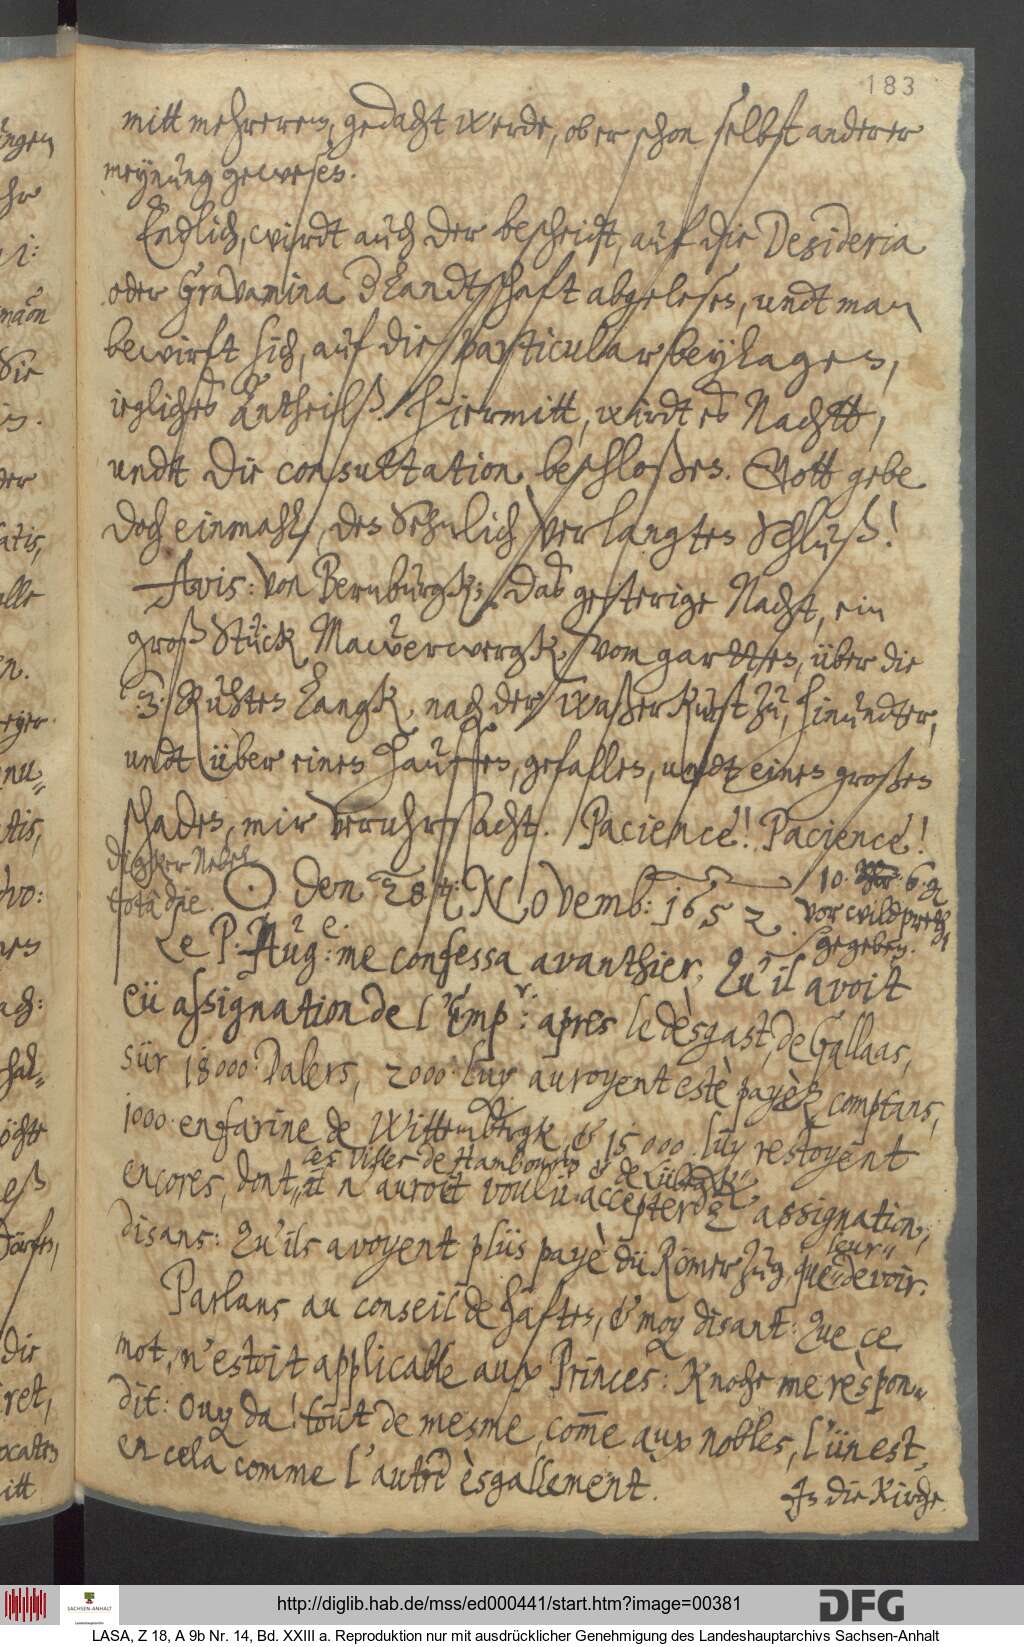 183
mitt mehrerem, gedacht werde, ob er schon selbst anderer
meynung gewesen.
Endlich, wirdt auch der bescheidt, auf die Desideria
oder Gravamina d Landtschaft abgelesen, undt man
bewirft sich, auf die particular beylagen,
iegliches Antheilß. hiermitt, wirdt es Nachtt,
undt die consultation beschloßen. Gott gebe
doch einmahl, den Sehnlich verlangten Schluß!
Avis: von Bernburgk; daß gesterige Nacht, ein
groß Stück Mawerwergk, vom gartten, über die
3. Ruhten langk, nach der Waßerkunst zu, hinundter,
undt über einen hauffen, gefallen, undt einen großen
schaden, mir veruhrsacht. Pacience! Pacience!
Dicker Nebel
tota die. ☉ den 28. Novemb: 1652.
10. 6. 2
vor wildpret
gegeben.
Le P. Aug: me confessa avanthier, Qu'il avoit
eü assignation de l'Emp.r: apres le desgast, de Gallaas,
sür 18000 Dalers, 2000 luy auroyent estè payèz comptans,
1000 en farine de Wittembergk, & 15000 luy restoyent
ces villes de Hambourg & de Lübeck
encores, dont, il n'auroit voulü accepter assignation,
disans: Qu'ils avoyent plüs payè dü Römer Zug, que
leur
devoir.
Parlans au conseil de haften, & moy disant: Que ce
mot, n'estoit applicable aux Princes: Knoche me rèspon-
dit: Ouy da! tout de mesme, come aux nobles, l'ün est,
en cela comme l'autre èsgallement.
In die Kirche
http://diglib.hab.de/mss/ed000441/start.htm?image=00381
SACHSEN-ANHALT
DFG
LASA, Z 18, A 9b Nr. 14, Bd. XXIII a. Reproduktion nur mit ausdrücklicher Genehmigung des Landeshauptarchivs Sachsen-Anhalt